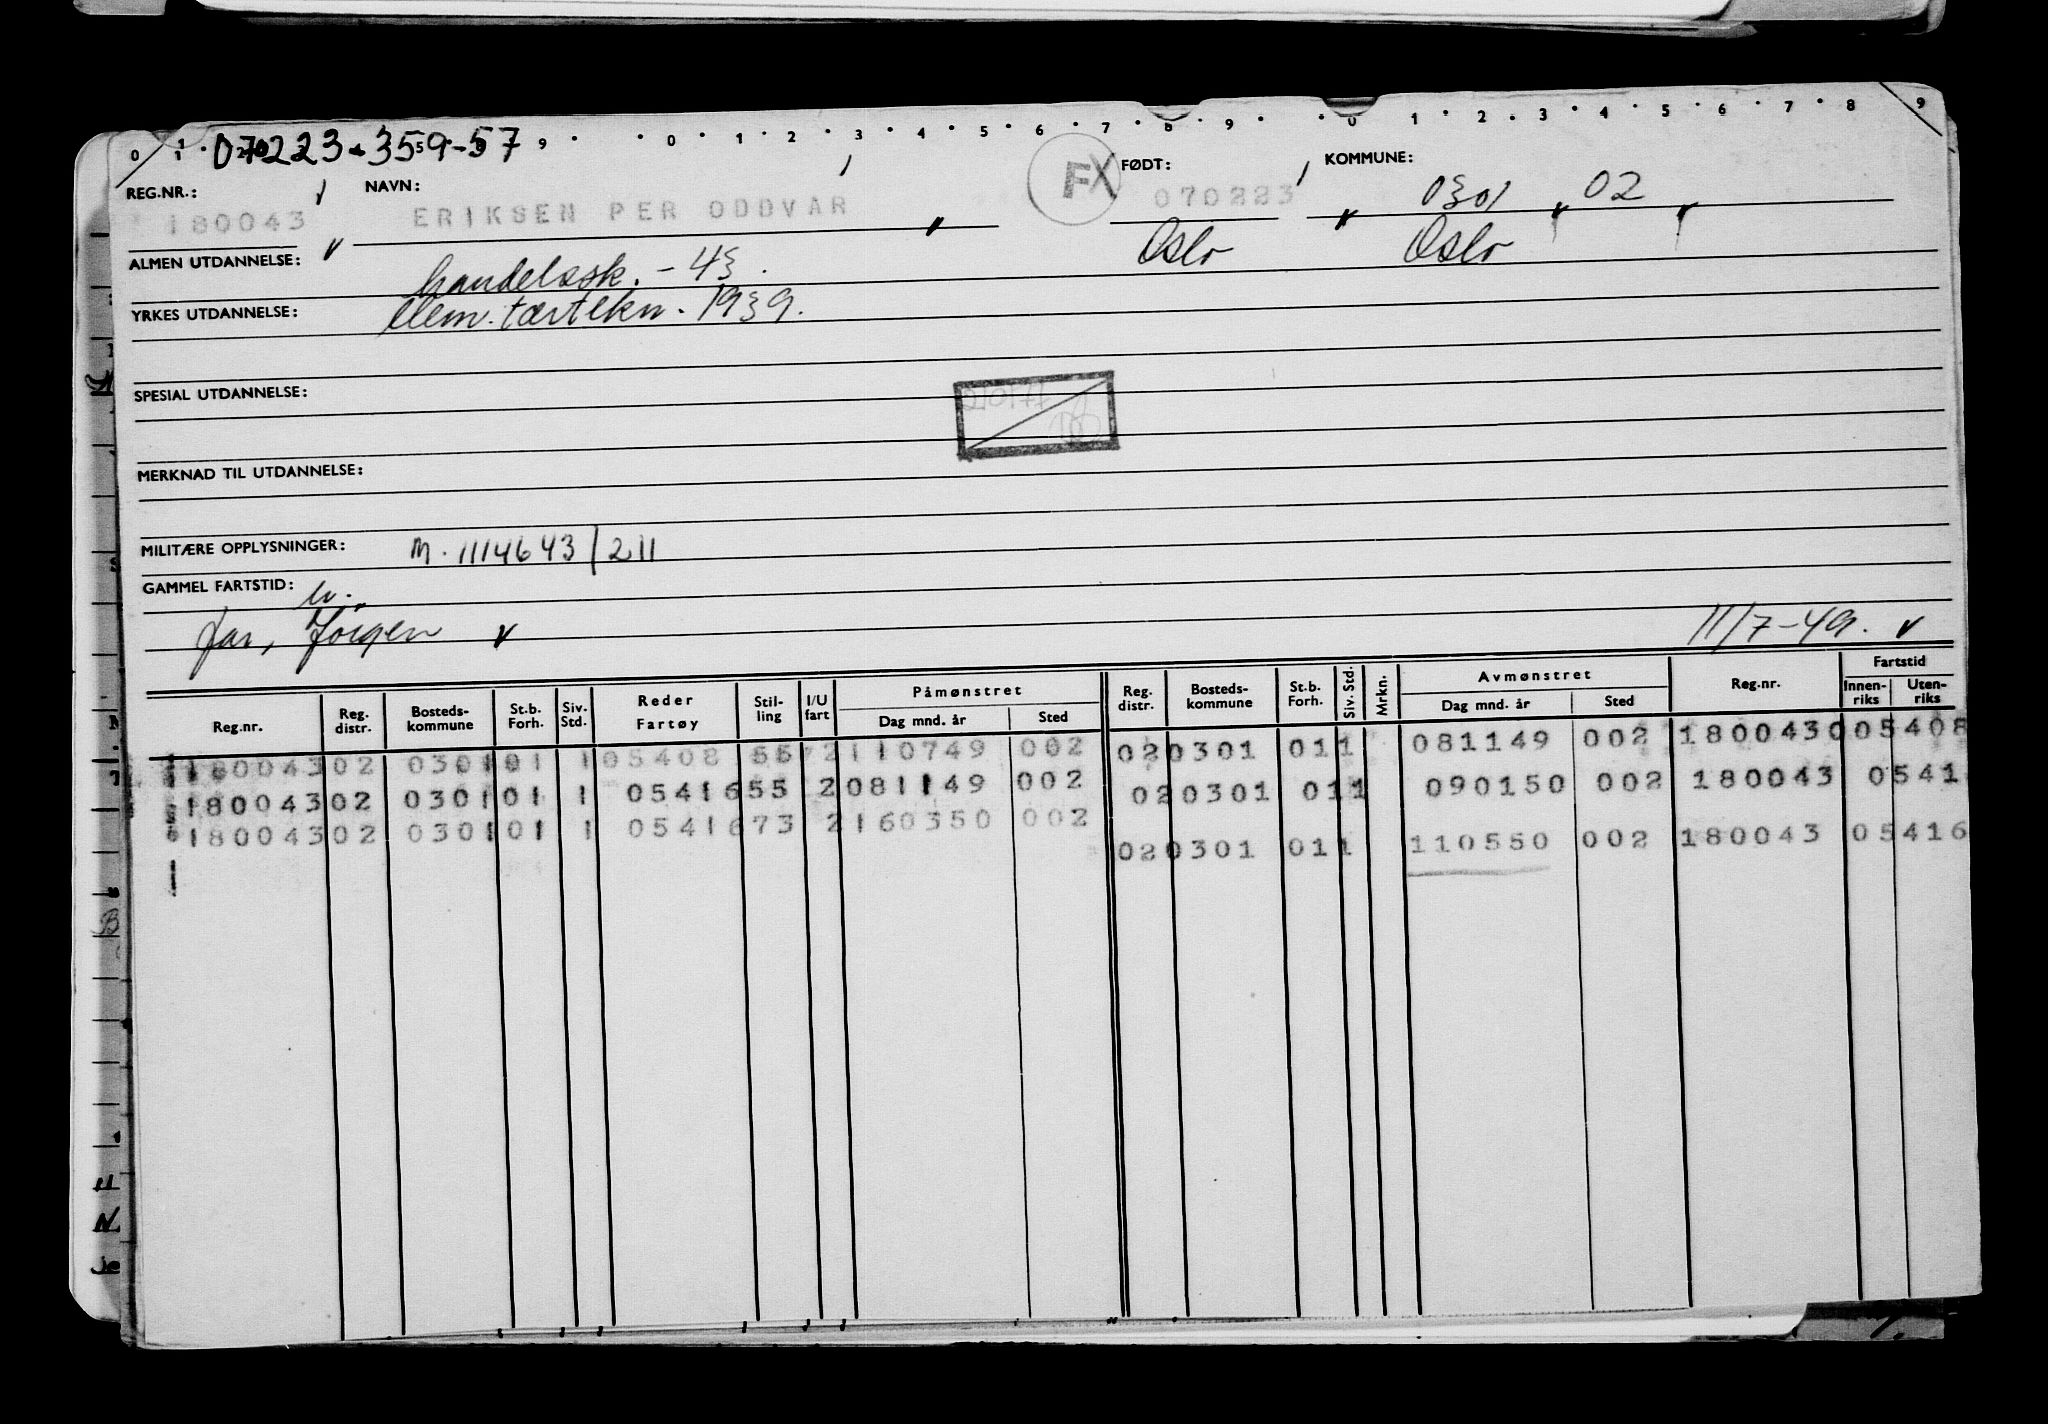 0 1 2 3 4 5 6 7 8 9 0 1 2 3 4 5 6 7 8 9
070223-359-57
REG.NR.: NAVN: FX FØDT: KOMMUNE:
180043 ERIKSEN PER ODDVAR 070223 0301 02
Oslo Oslo
ALMEN UTDANNELSE: handelssk. - 43.
YRKES UTDANNELSE: elem. tært ekn. 1939.
SPESIAL UTDANNELSE:
MERKNAD TIL UTDANNELSE:
MILITÆRE OPPLYSNINGER: M. 1114643/211
GAMMEL FARTSTID:
far, Jørgen 11/7-49.
Reg.nr. Reg. distr. Bosteds- kommune St.b. Forh. Siv. Std. Reder Fartøy Stil- ling I/U fart Påmønstret Dag mnd. år Sted Reg. distr. Bosteds- kommune St.b. Forh. Siv. Std. Mrkn. Avmønstret Dag mnd. år Sted Reg.nr. Fartstid Innen- riks Uten- riks
180043 02 0301 01 1 05408 55 2 110749 002 02 0301 01 1 081149 002 180043 0 05408
180043 02 0301 01 1 05416 55 2 081149 002 02 0301 01 1 090150 002 180043 0541
180043 02 0301 01 1 05416 73 2 160350 002 02 0301 01 1 110550 002 180043 05416